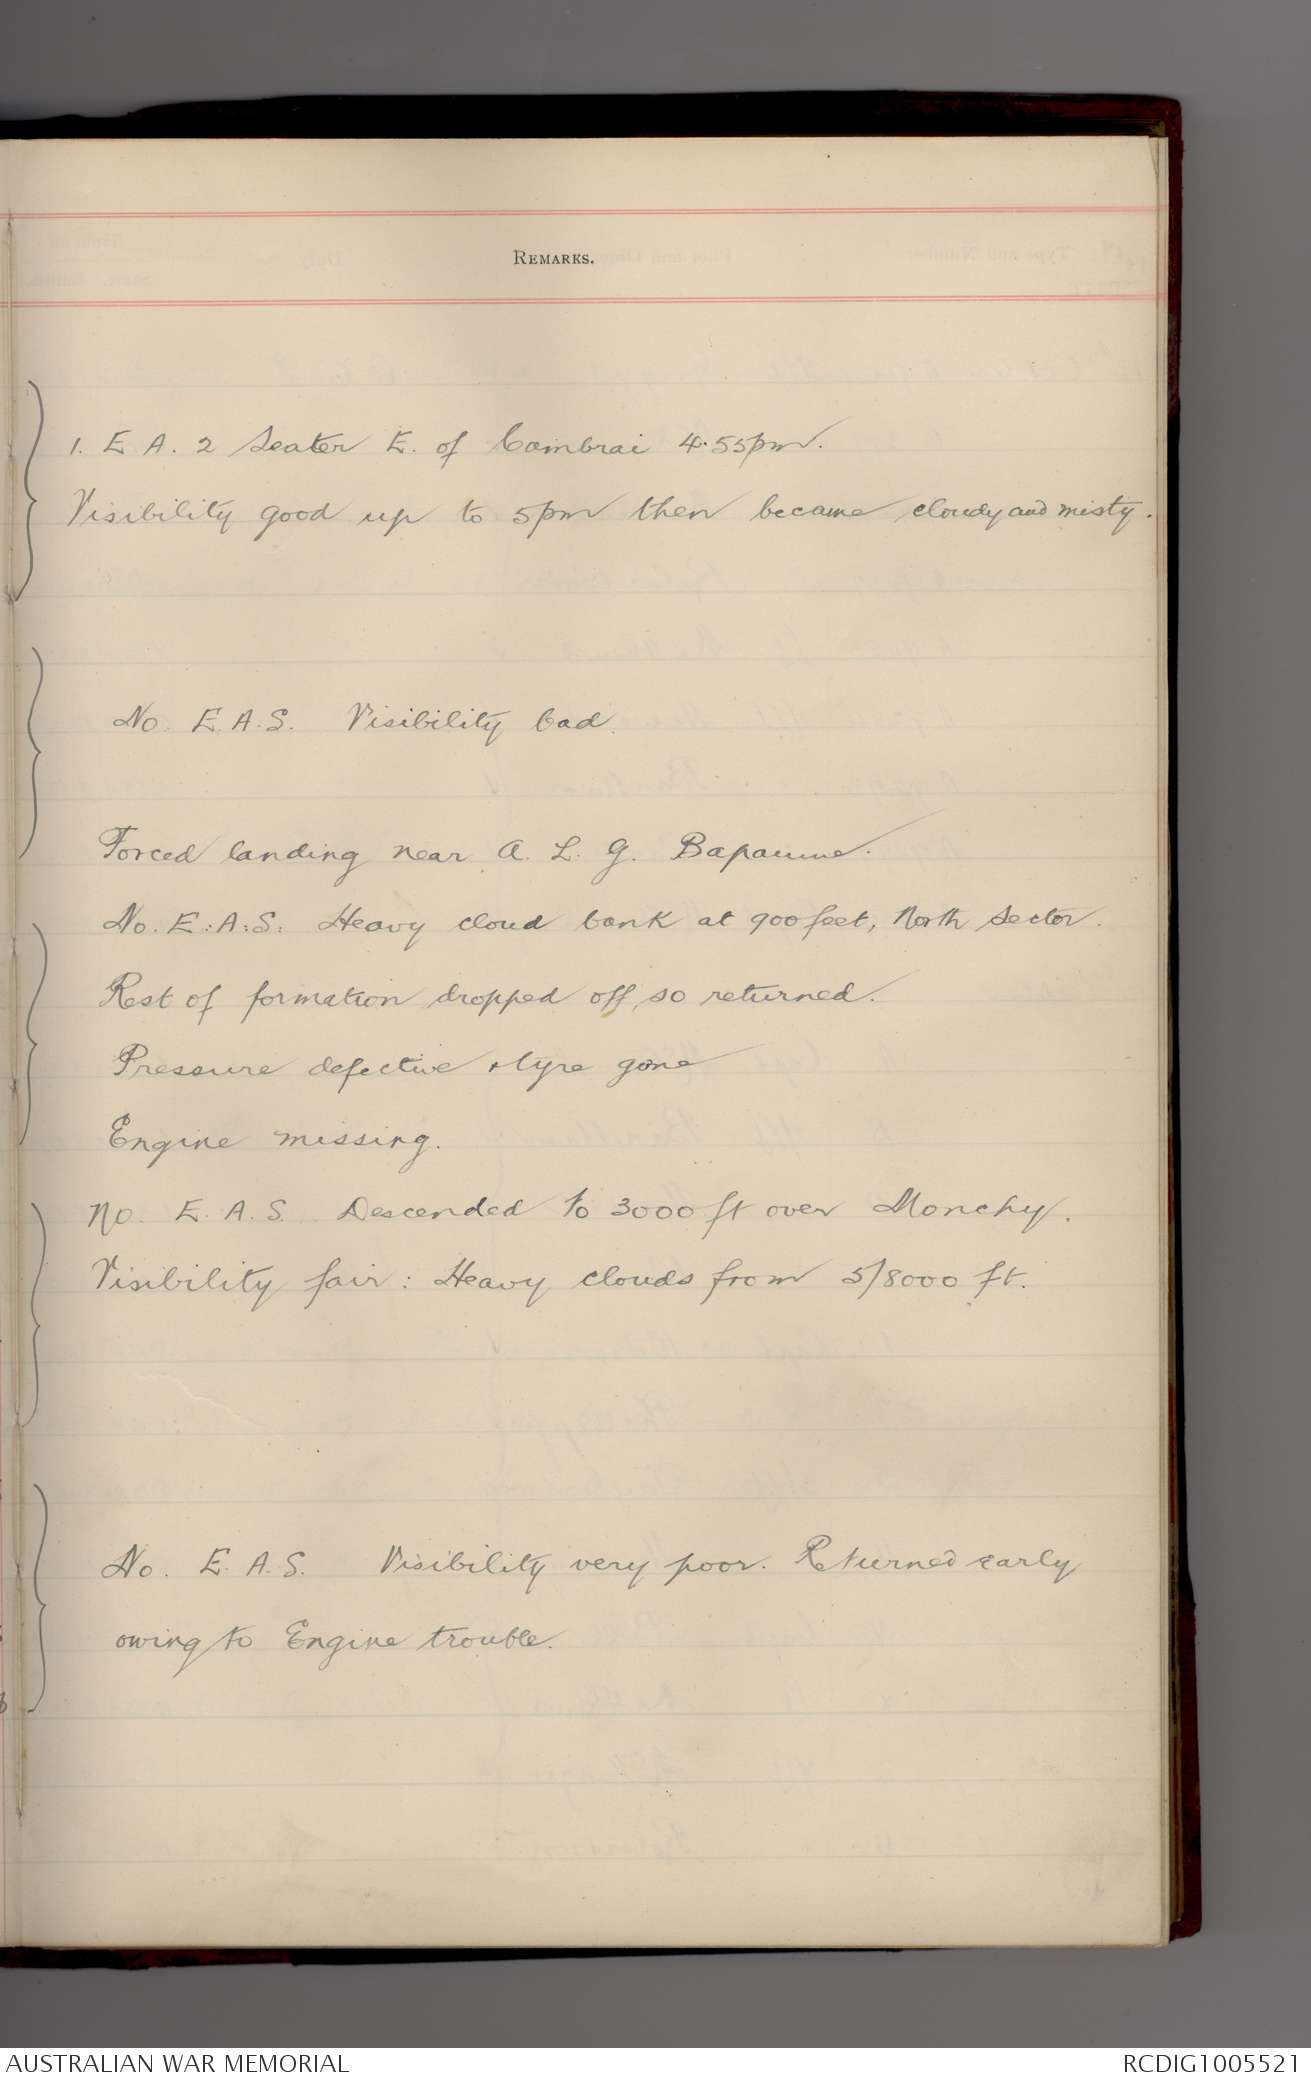 REMARKS.
1. E A. 2 Seater E. of Cambrai 4.55pm.
Visibility good up to 5pm then became cloudy and misty.
No. E.A.S. Visibility bad.
Forced landing near A. L. G. Bapaume.
No. E.A.S. Heavy cloud bank at 900 feet, North Sector.
Rest of formation dropped off, so returned.
Pressure defective & tyre gone
Engine missing.
No. E. A. S. Descended to 3000 ft over Monchy.
Visibility fair: Heavy clouds from 5/8000 ft.
No. E. A. S. Visibility very poor. Returned early
owing to Engine trouble.
AUSTRALIAN WAR MEMORIAL
RCDIG1005521